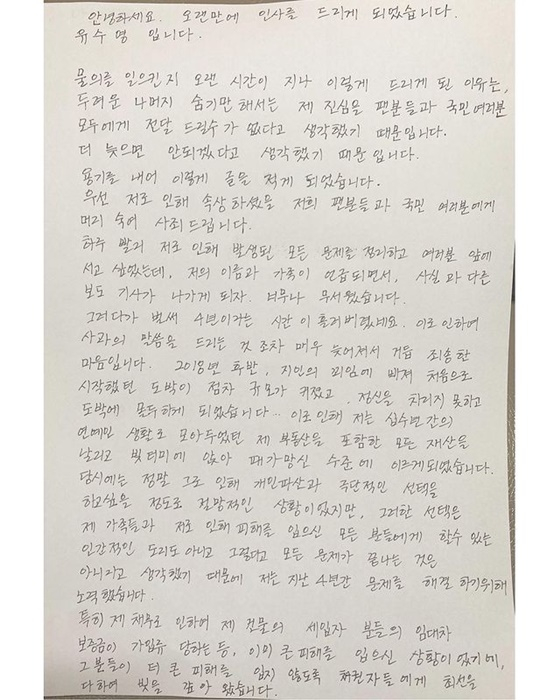 안녕하세요. 오랜만에 인사를 드리게 되었습니다.
유수영 입니다.
물의를 일으킨지 오랜 시간이 지나 이렇게 드리게 된 이유는,
두려운 나머지 숨기만 해서는 제 진심을 팬분들과 국민여러분
모두에게 전달 드릴수가 없다고 생각했기 때문입니다.
더 늦으면 안되겠다고 생각했기 때문입니다.
용기를 내어 이렇게 글을 적게 되었습니다.
우선 저로 인해 속상하셨을 저희 팬분들과 국민 여러분에게
머리 숙여 사죄드립니다.
하루 빨리 저로 인해 발생된 모든 문제를 정리하고 여러분 앞에
서고 싶었는데, 저의 이름과 가족이 언급되면서, 사실과 다른
보도 기사가 나가게 되자. 너무나 무서웠습니다.
그러다가 벌써 4년이라는 시간이 흘러버렸네요. 이로 인하여
사과의 말씀을 드리는 것 조차 매우 늦어져서 거듭 죄송한
마음입니다. 2018년 후반, 지인의 꾀임에 빠져 처음으로
시작했던 도박이 점차 규모가 커졌고. 정신을 차리지 못하고
도박에 몰두하게 되었습니다... 이로 인해 저는 십수년간의
연예인 생활로 모아두었던 제 부동산을 포함한 모든 재산을
날리고 빚더미에 앉아 패가망신 수준에 이르게되었습니다.
당시에는 정말 그로 인해 개인파산과 극단적인 선택을
하고싶을 정도로 절망적인 상황이었지만, 그러한 선택은
제 가족들과 저로 인해 피해를 입으신 모든 분들에게 할수 있는
인간적인 도리도 아니고 그렇다고 모든 문제가 끝나는 것은
아니라고 생각했기 때문에 저는 지난 4년간 문제를 해결 하기위해
노력했습니다.
특히 제 채무로 인하여 제 건물의 세입자 분들의 임대차
보증금이 가압류 당하는 등, 이미 큰 피해를 입으신 상황이 있기에,
그분들이 더 큰 피해를 입지 않도록 채권자들에게 최선을
다하여 빚을 갚아 왔습니다.